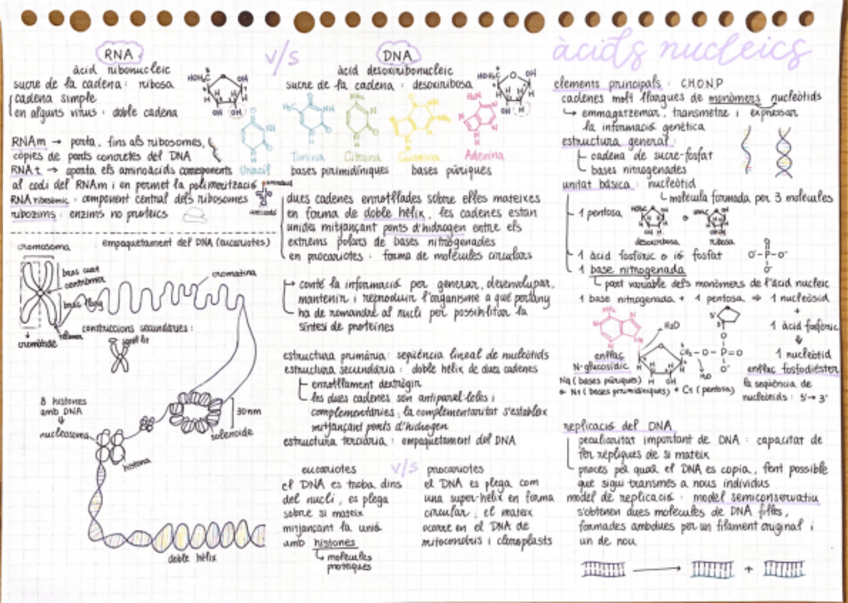 RNA
v/s
DNA
àcids nucleics
àcid ribonucleic
sucre de la cadena : ribosa
cadena simple
en alguns virus : doble cadena
RNAm → porta, fins als ribosomes,
còpies de parts concretes del DNA
RNAt → aporta els aminoàcids corresponents
al codi del RNAm i en permet la polimerització
RNA ribosòmic : component central dels ribosomes
ribozims : enzims no proteics
àcid desoxiribonucleic
sucre de la cadena : desoxiribosa
Uracil
Timina
Citosina
Guanina
Adenina
bases pirimidíniques
bases púriques
dues cadenes enrotllades sobre elles mateixes
en forma de doble hèlix, les cadenes estan
unides mitjançant ponts d'hidrogen entre els
extrems polars de bases nitrogenades
en procariotes : forma de molècules circulars
conté la informació per generar, desenvolupar,
mantenir i reproduir l'organisme a què pertany
ha de romandre al nucli per possibilitar la
síntesi de proteïnes
estructura primària: seqüència lineal de nucleòtids
estructura secundària : doble hèlix de dues cadenes
enrotllament dextrogir
les dues cadenes són antiparal·leles i
complementàries; la complementaritat s'estableix
mitjançant ponts d'hidrogen
estructura terciària : empaquetament del DNA
eucariotes
v/s
procariotes
el DNA es troba dins
del nucli, es plega
sobre si mateix
mitjançant la unió
amb histones
molècules
proteiques
el DNA es plega com
una super-hèlix en forma
circular, el mateix
ocorre en el DNA de
mitocondris i cloroplasts
empaquetament del DNA (eucariotes)
cromosoma
braç curt
centròmer
braç llarg
telòmer
cromàtide
cromatina
construccions secundàries :
satèl·lit
8 histones
amb DNA
nucleosoma
histona
30nm
solenoide
doble hèlix
elements principals : C,H,O,N,P
cadenes molt llargues de monòmers nucleòtids
emmagatzemar, transmetre i expressar
la informació genètica
estructura general :
cadena de sucre-fosfat
bases nitrogenades
unitat bàsica : nucleòtid
molècula formada per 3 molècules
1 pentosa
desoxiribosa
o
ribosa
1 àcid fosfòric o ió fosfat
1 base nitrogenada
part variable dels monòmers de l'àcid nucleic
1 base nitrogenada + 1 pentosa ⇒ 1 nucleòsid
+
1 àcid fosfòric
1 nucleòtid
H₂O
enllaç
N-glucosídic
N9 (bases púriques)
o N1 (bases pirimidíniques) + C1 (pentosa)
enllaç fosfodièster
la seqüència de
nucleòtids : 5'→ 3'
replicació del DNA
peculiaritat important de DNA : capacitat de
fer rèpliques de si mateix
procés pel qual el DNA es copia, fent possible
que sigui transmès a nous individus
model de replicació : model semiconservatiu
s'obtenen dues molècules de DNA filles,
formades ambdues per un filament original i
un de nou
+